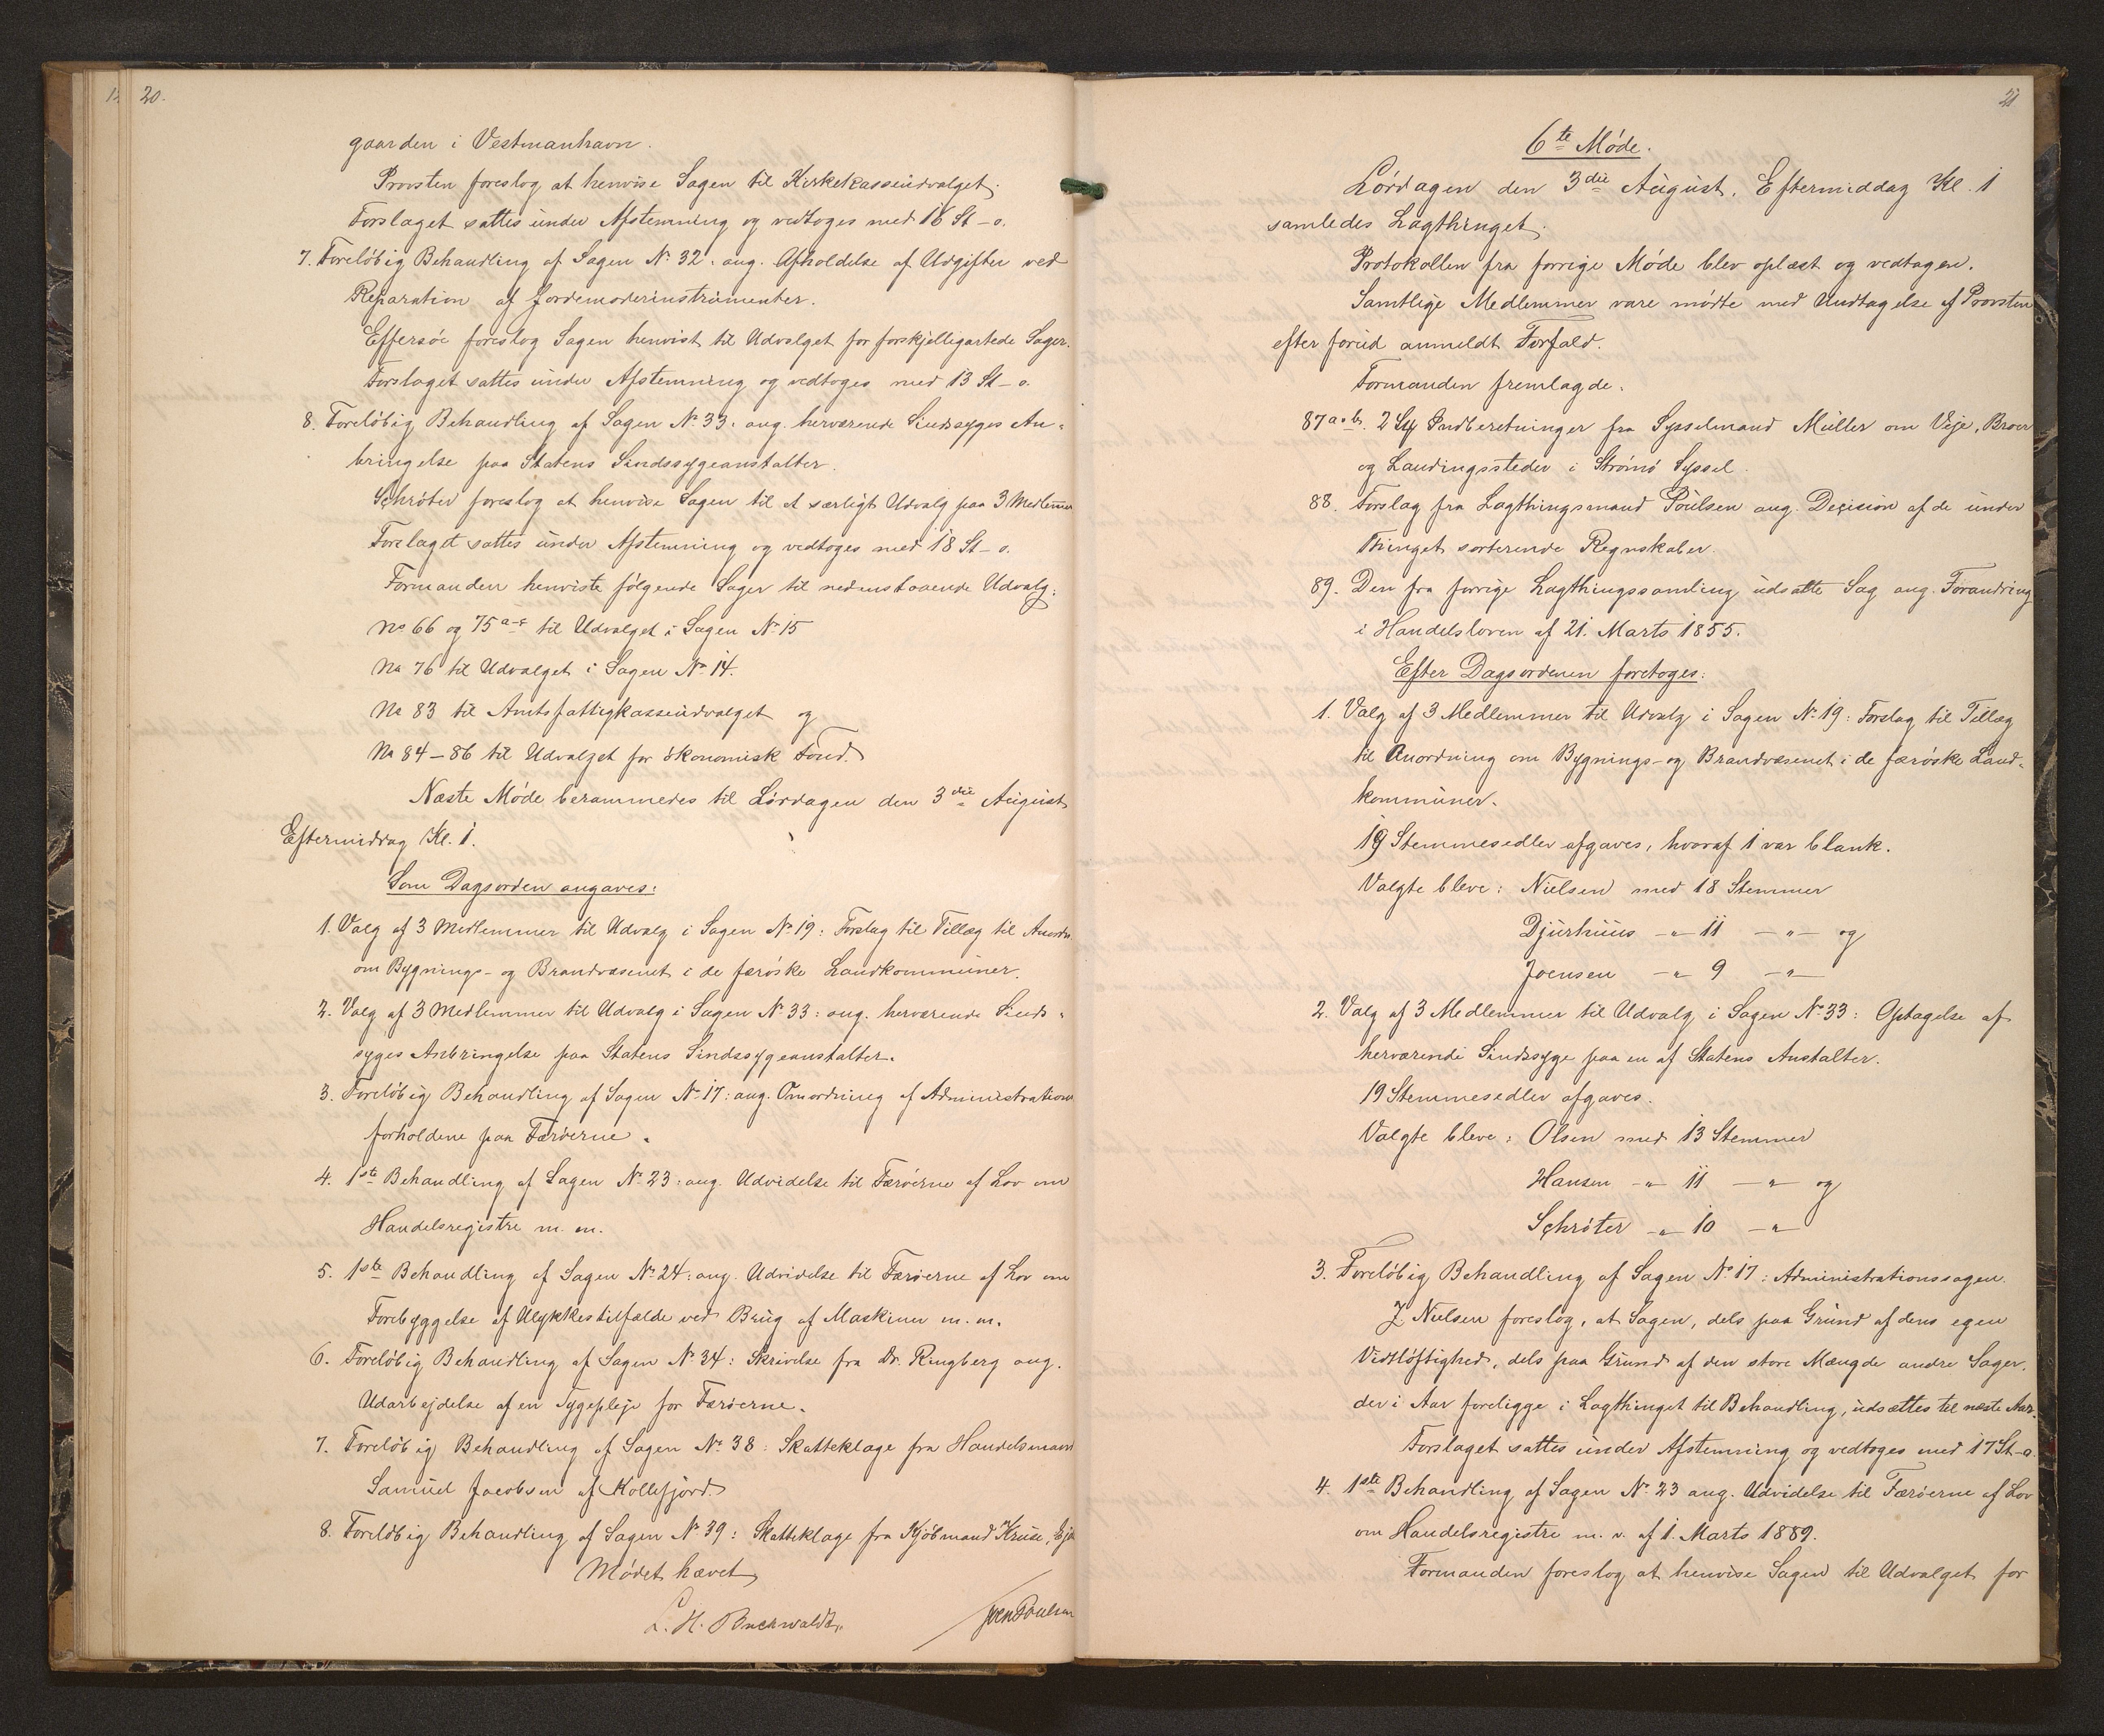 20.
gaarden i Vestmanhavn.
Provsten foreslog at henvise Sagen til Kirkekasseudvalget.
Forslaget sattes under Afstemning og vedtoges med 16 St – o.
7. Foreløbig Behandling af Sagen No 32: ang. Afholdelse af Udgifter ved
Reparation af Jordemoderinstrumenter.
Effersøe foreslog Sagen henvist til Udvalget for forskjelligartede Sager.
Forslaget sattes under Afstemning og vedtoges med 13 St – o.
8. Foreløbig Behandling af Sagen No 33: ang. herværende Sindssyges An-
bringelse paa Statens Sindssygeanstalter.
Schrøter foreslog at henvise Sagen til et særligt Udvalg paa 3 Medlemmer
Forslaget sattes under Afstemning og vedtoges med 18 St – o.
Formanden henviste følgende Sager til nedenstaaende Udvalg:
No 66 og 75 a-c til Udvalget i Sagen No 15
No 76 til Udvalget i Sagen No 14.
No 83 til Amtsfattigkasseudvalget og
No 84 – 86 til Udvalget for økonomisk Fond.
Næste Møde berammedes til Lørdagen den 3die August
Eftermiddag Kl. 1.
Som Dagsorden angaves:
1. Valg af 3 Medlemmer til Udvalg i Sagen No 19: Forslag til Tillæg til Anordn.
om Bygnings- og Brandvæsenet i de færøske Landkommuner.
2. Valg af 3 Medlemmer til Udvalg i Sagen No 33: ang. herværende Sinds-
syges Anbringelse paa Statens Sindssygeanstalter.
3. Foreløbig Behandling af Sagen No 17: ang. Omordning af Administrations
forholdene paa Færøerne.
4. 1ste Behandling af Sagen No 23: ang. Udvidelse til Færøerne af Lov om
Handelsregistre m. m.
5. 1ste Behandling af Sagen No 24: ang. Udvidelse til Færøerne af Lov om
Forebyggelse af Ulykkestilfælde ved Brug af Maskiner m. m.
6. Foreløbig Behandling af Sagen No 34: Skrivelse fra Dr. Ringberg ang.
Udarbejdelse af en Sygepleje for Færøerne.
7. Foreløbig Behandling af Sagen No 38: Skatteklage fra Handelsmand
Samuel Jacobsen af Kollefjord.
8. Foreløbig Behandling af Sagen No 39: Skatteklage fra Kjøbmand Kruse,
Mødet hævet
L. H. Buchwaldt.
Poulsen
21
6te Møde.
Lørdagen den 3die August, Eftermiddag Kl. 1
samledes Lagthinget.
Protokollen fra forrige Møde blev oplæst og vedtagen.
Samtlige Medlemmer vare mødte med Undtagelse af Provsten
efter forud anmeldt Forfald.
Formanden fremlagde:
87 a o b. 2 Indberetninger fra Sysselmand Müller om Veje, Broer
og Landingssteder i Strømø Syssel.
88. Forslag fra Lagthingsmand Poulsen ang. Decision af de under
Thinget sorterende Regnskaber.
89. Den fra forrige Lagthingssamling udsatte Sag ang. Forandring
i Handelsloven af 21. Marts 1855.
Efter Dagsordenen foretoges:
1. Valg af 3 Medlemmer til Udvalg i Sagen No 19: Forslag til Tillæg
til Anordning om Bygnings- og Brandvæsenet i de færøske Land-
kommuner.
19 Stemmesedler afgaves, hvoraf 1 var blank.
Valgte bleve: Nielsen med 18 Stemmer
Djurhuus –"– 11 –"– og
Joensen –"– 9 –"–
2. Valg af 3 Medlemmer til Udvalg i Sagen No 33: Optagelse af
herværende Sindssyge paa en af Statens Anstalter.
19 Stemmesedler afgaves.
Valgte bleve: Olsen med 13 Stemmer
Hansen –"– 11 –"– og
Schrøter –"– 10 –"–
3. Foreløbig Behandling af Sagen No 17: Administrationssagen.
J Nielsen foreslog, at Sagen, dels paa Grund af dens egen
Vidtløftighed, dels paa Grund af den store Mængde andre Sager,
der i Aar foreligge i Lagthinget til Behandling, udsættes til næste Aar.
Forslaget sattes under Afstemning og vedtoges med 17 St – o.
4. 1ste Behandling af Sagen No 23 ang. Udvidelse til Færøerne af Lov
om Handelsregistre m. v. af 1. Marts 1889.
Formanden foreslog at henvise Sagen til Udvalget for